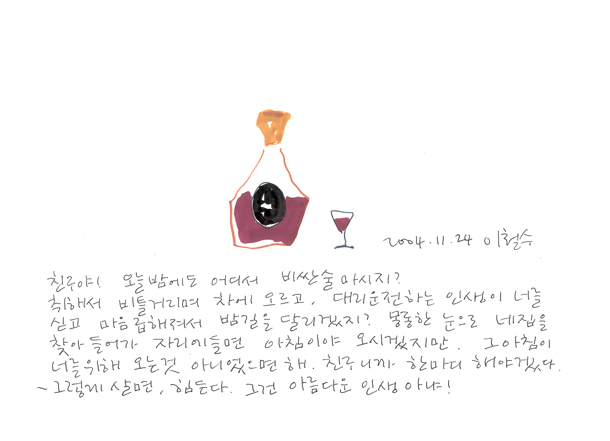 2004.11.24 이철수
친구야! 오늘밤에도 어디서 비싼술마시지?
취해서 비틀거리며 차에 오르고, 대리운전하는 인생이 너를
싣고 마음급해져서 밤길을 달리겠지? 몽롱한 눈으로 네집을
찾아 들어가 자리에들면 아침이야 오시겠지만, 그아침이
너를위해 오는것 아니었으면 해. 친구니까 한마디 해야겠다.
~그렇게 살면, 힘든다. 그건 아름다운 인생 아냐!